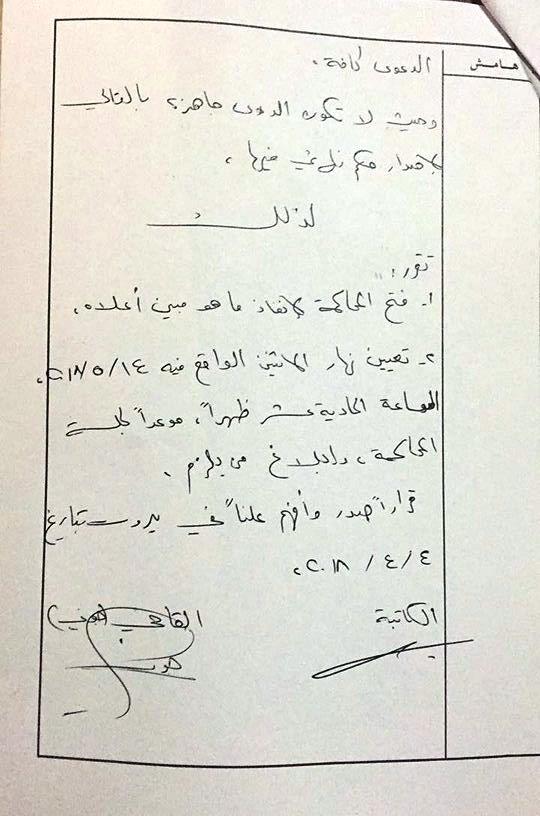 هامش
الدعوى كافة.
وحيث لا تكون الدعوى جاهزة بالتالي
لإصدار حكم نهائي فيها،
لذلك
تقرر:
١- فتح المحاكمة لإنفاذ ما هو مبين أعلاه.
٢- تعيين نهار الاثنين الواقع فيه ٢٠١٨/٥/١٤،
الساعة الحادية عشر ظهراً، موعداً لجلسة
المحاكمة، وإبلاغ من يلزم.
قراراً صدر وأفهم علناً في بيروت بتاريخ
٢٠١٨/٤/٤.
الكاتبة القاضي